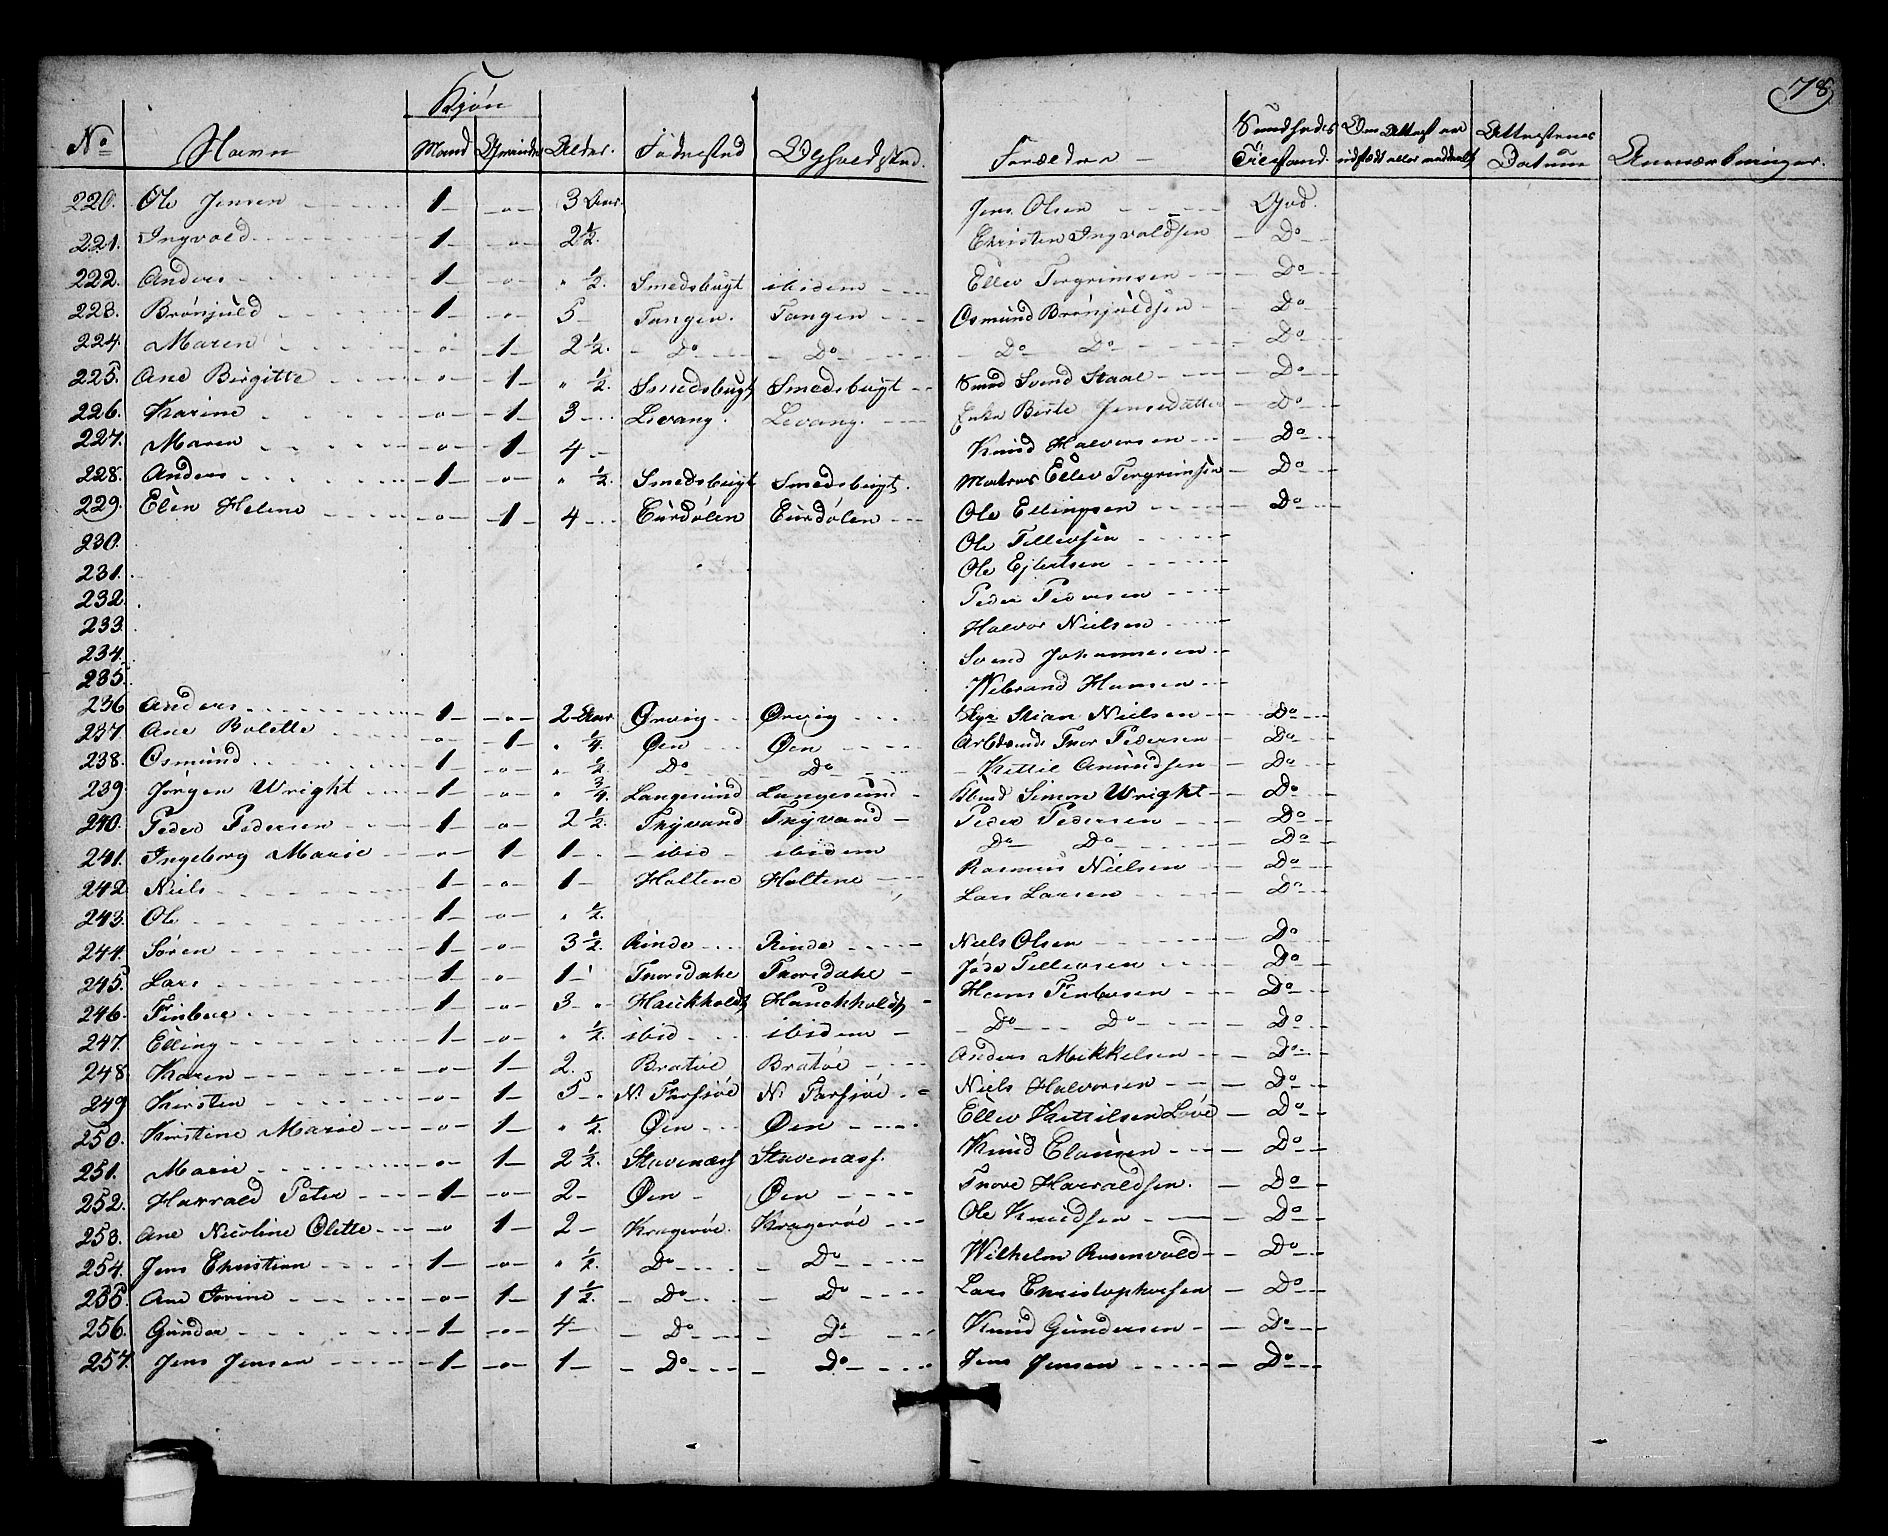 78
Kjön
No Navn Mand Qvinde Alder. Fødested Opholdssted. Forældre Sundheds Tilstand. Om Attest er udstædt eller meddelt Attestens Datum Anmærkninger.
220. Ole Jensen 1 o 3 Aar Jens Olsen God.
221. Ingvald 1 o 2½ Christen Ingvaldsen Do
222. Anders 1 o " ½ Smedsbugt ibidem Ellev Tergrimsen Do
223. Brönjuld 1 o 5 Tangen. Tangen Osmund Brönjuldsen Do
224. Maren o 1 2½ Do Do Do Do Do
225. Ane Birgitte o 1 " ½ Smedsbugt Smedsbugt Smed Svend Staal Do
226. Karine o 1 3 Levang. Levang. Enke Birte Jensedatter Do
227. Maren o 1 4 Knud Halvorsen Do
228. Anders 1 o " ½ Smedsbugt Smedsbugt. Matros Ellev Tergrimsen Do
229. Elen Helene o 1 4 Eurdölen Eurdölen Ole Ellingsen Do
230. Ole Tellevsen
231. Ole Ejlertsen
232. Peder Pedersen
233. Halvor Nielsen
234. Svend Johannesen
235. Webrand Hansen
236 Anders 1 o 2 Aar Ørvig Ørvig Stian Nielsen Do
237. Ane Bolette o 1 " ¼ Øen Øen Arbdsmd. Thor Pedersen Do
238. Osmund 1 o " ½ Do Do Kittil Amundsen Do
239. Jörgen Wright 1 o " ¾ Langesund Langesund Simon Wright Do
240. Peder Pedersen 1 o 2½ Thyvand Thyvand Peder Pedersen Do
241. Ingeborg Marie o 1 1 ibid ibidem Do Do Do
242. Niels 1 o 1 Holtene Holtene Rasmus Nielsen Do
243. Ole 1 o " ½ Lars Larsen Do
244. Sören 1 o 3½ Rinde Rinde Niels Olsen Do
245. Lars 1 o 1 Thorsdahl Thorsdahl Tellevsen Do
246. Finboe 1 o 3 Hauekholdt Hauekholdt Hans Finboesen Do
247. Elling 1 o " ½ ibid ibidem Do Do Do
248. Karen o 1 2 Bratöe Bratöe Anders Mikkelsen Do
249 Kirsten o 1 5 N. Farsjöe N. Farsjöe Niels Halvorsen Do
250. Kirstine Marie o 1 " ½ Øen Øen Ellev Kittilsen Do
251. Marie o 1 2½ Stavenæss Stavenæss. Knud Clausen Do
252. Harrald Peter 1 o 2 Øen Øen Thore Haraldsen. Do
253. Ane Nicoline Olette o 1 2 Kragerøe. Kragerøe Ole Knudsen Do
254. Jens Christian 1 o " ½ Do Do Wilhelm Rosenvold Do
255. Ane Torine o 1 1½ Do Do Lars Christophersen Do
256. Gunder 1 o 4 Do Do Knud Gundersen Do
257. Jens Jensen 1 o 1 Do Do Jens Jensen Do